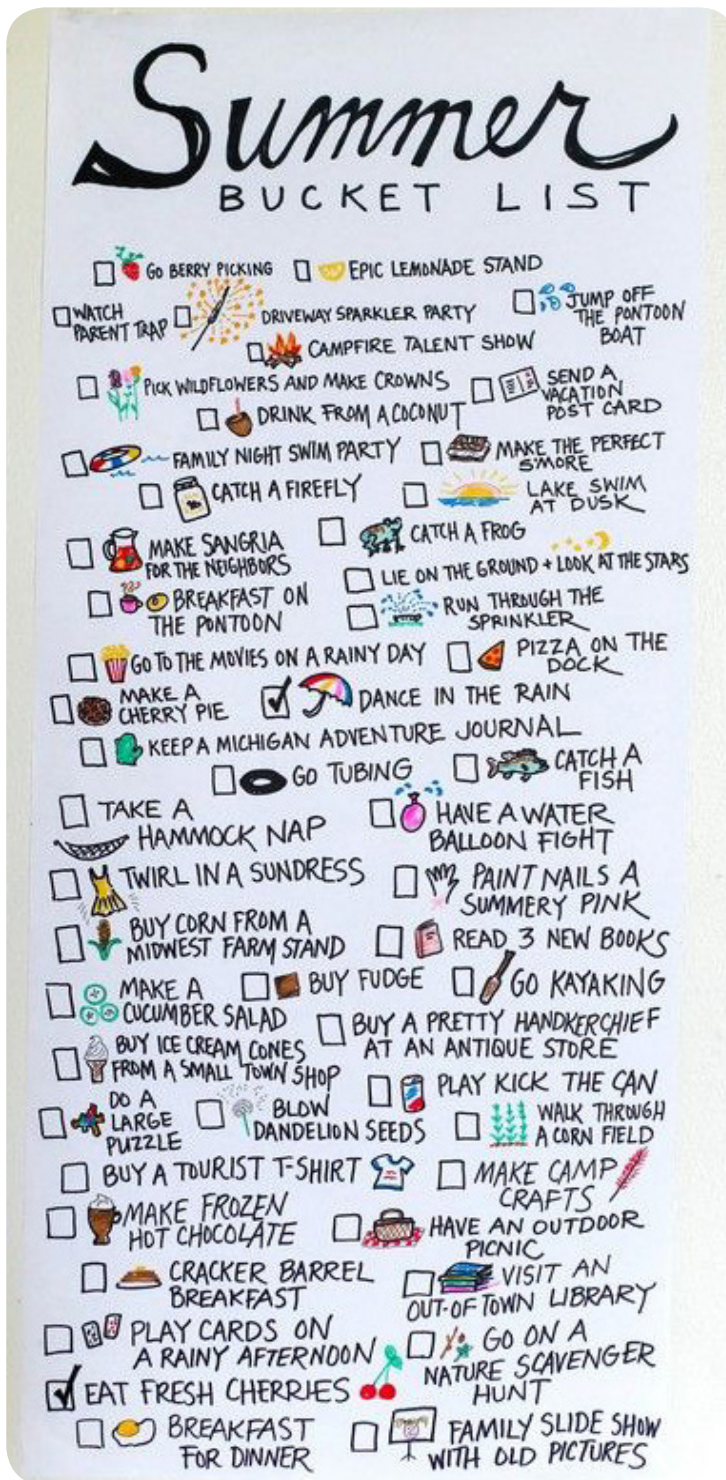 Summer
BUCKET LIST
GO BERRY PICKING
EPIC LEMONADE STAND
WATCH
PARENT TRAP
DRIVEWAY SPARKLER PARTY
JUMP OFF
THE PONTOON
BOAT
CAMPFIRE TALENT SHOW
PICK WILDFLOWERS AND MAKE CROWNS
SEND A
VACATION
POST CARD
DRINK FROM A COCONUT
FAMILY NIGHT SWIM PARTY
MAKE THE PERFECT
S'MORE
CATCH A FIREFLY
LAKE SWIM
AT DUSK
MAKE SANGRIA
FOR THE NEIGHBORS
CATCH A FROG
LIE ON THE GROUND + LOOK AT THE STARS
BREAKFAST ON
THE PONTOON
RUN THROUGH THE
SPRINKLER
GO TO THE MOVIES ON A RAINY DAY
PIZZA ON THE
DOCK
MAKE A
CHERRY PIE
DANCE IN THE RAIN
KEEP A MICHIGAN ADVENTURE JOURNAL
GO TUBING
CATCH A
FISH
TAKE A
HAMMOCK NAP
HAVE A WATER
BALLOON FIGHT
TWIRL IN A SUNDRESS
PAINT NAILS A
SUMMERY PINK
BUY CORN FROM A
MIDWEST FARM STAND
READ 3 NEW BOOKS
MAKE A
CUCUMBER SALAD
BUY FUDGE
GO KAYAKING
BUY A PRETTY HANDKERCHIEF
AT AN ANTIQUE STORE
BUY ICE CREAM CONES
FROM A SMALL TOWN SHOP
PLAY KICK THE CAN
DO A
LARGE
PUZZLE
BLOW
DANDELION SEEDS
WALK THROUGH
A CORN FIELD
BUY A TOURIST T-SHIRT
MAKE CAMP
CRAFTS
MAKE FROZEN
HOT CHOCOLATE
HAVE AN OUTDOOR
PICNIC
CRACKER BARREL
BREAKFAST
VISIT AN
OUT-OF TOWN LIBRARY
PLAY CARDS ON
A RAINY AFTERNOON
GO ON A
NATURE SCAVENGER
HUNT
EAT FRESH CHERRIES
BREAKFAST
FOR DINNER
FAMILY SLIDE SHOW
WITH OLD PICTURES